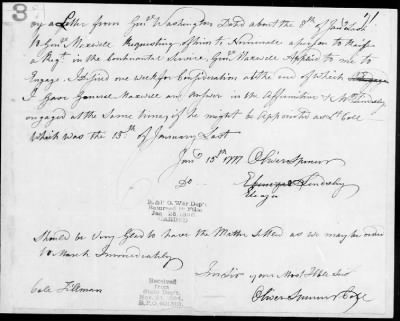 8
by a Letter from Genl Washington Dated about the 8th of Jany Last
to Genl Maxwell Requesting of him to Nominate a person to Raise
a Regt in the Continental Service, Genl Maxwell Applied to me to
Engage I desired one week for Consideration at the end of which
I Gave General Maxwell an Answer in the Affirmative & Mr Lindsley
engaged at the Same time, if he might be Appointed as Lt Coll
Which was the 15th of January Last
Jany 15th 1777 Oliver Spencer
Do Ebenezer Lindsley
Eleazer
R. & P. O. War Dep't
Returned to Files
CARDED
Should be Very Glad to have the Matter Settled as we may be orderd
to March Immediately
Coll Tillman
Received
from
State Dept.
your Most Hble Ser
Oliver Spencer Coll